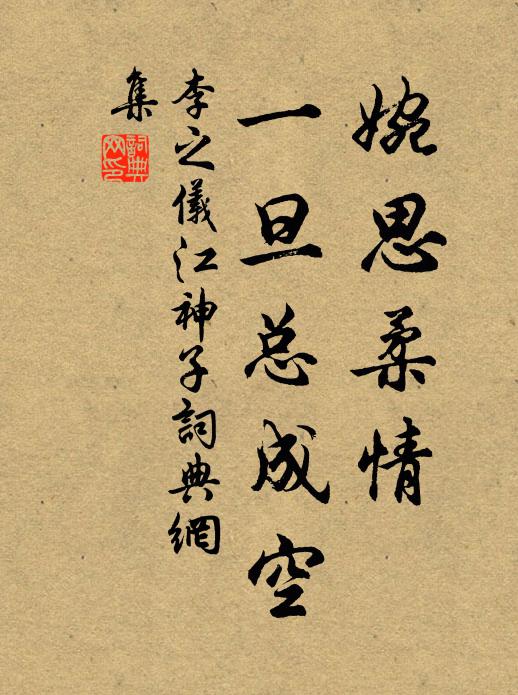 婉思柔情
一旦总成空
李之儀江神子詞典網
集
詞典
网印